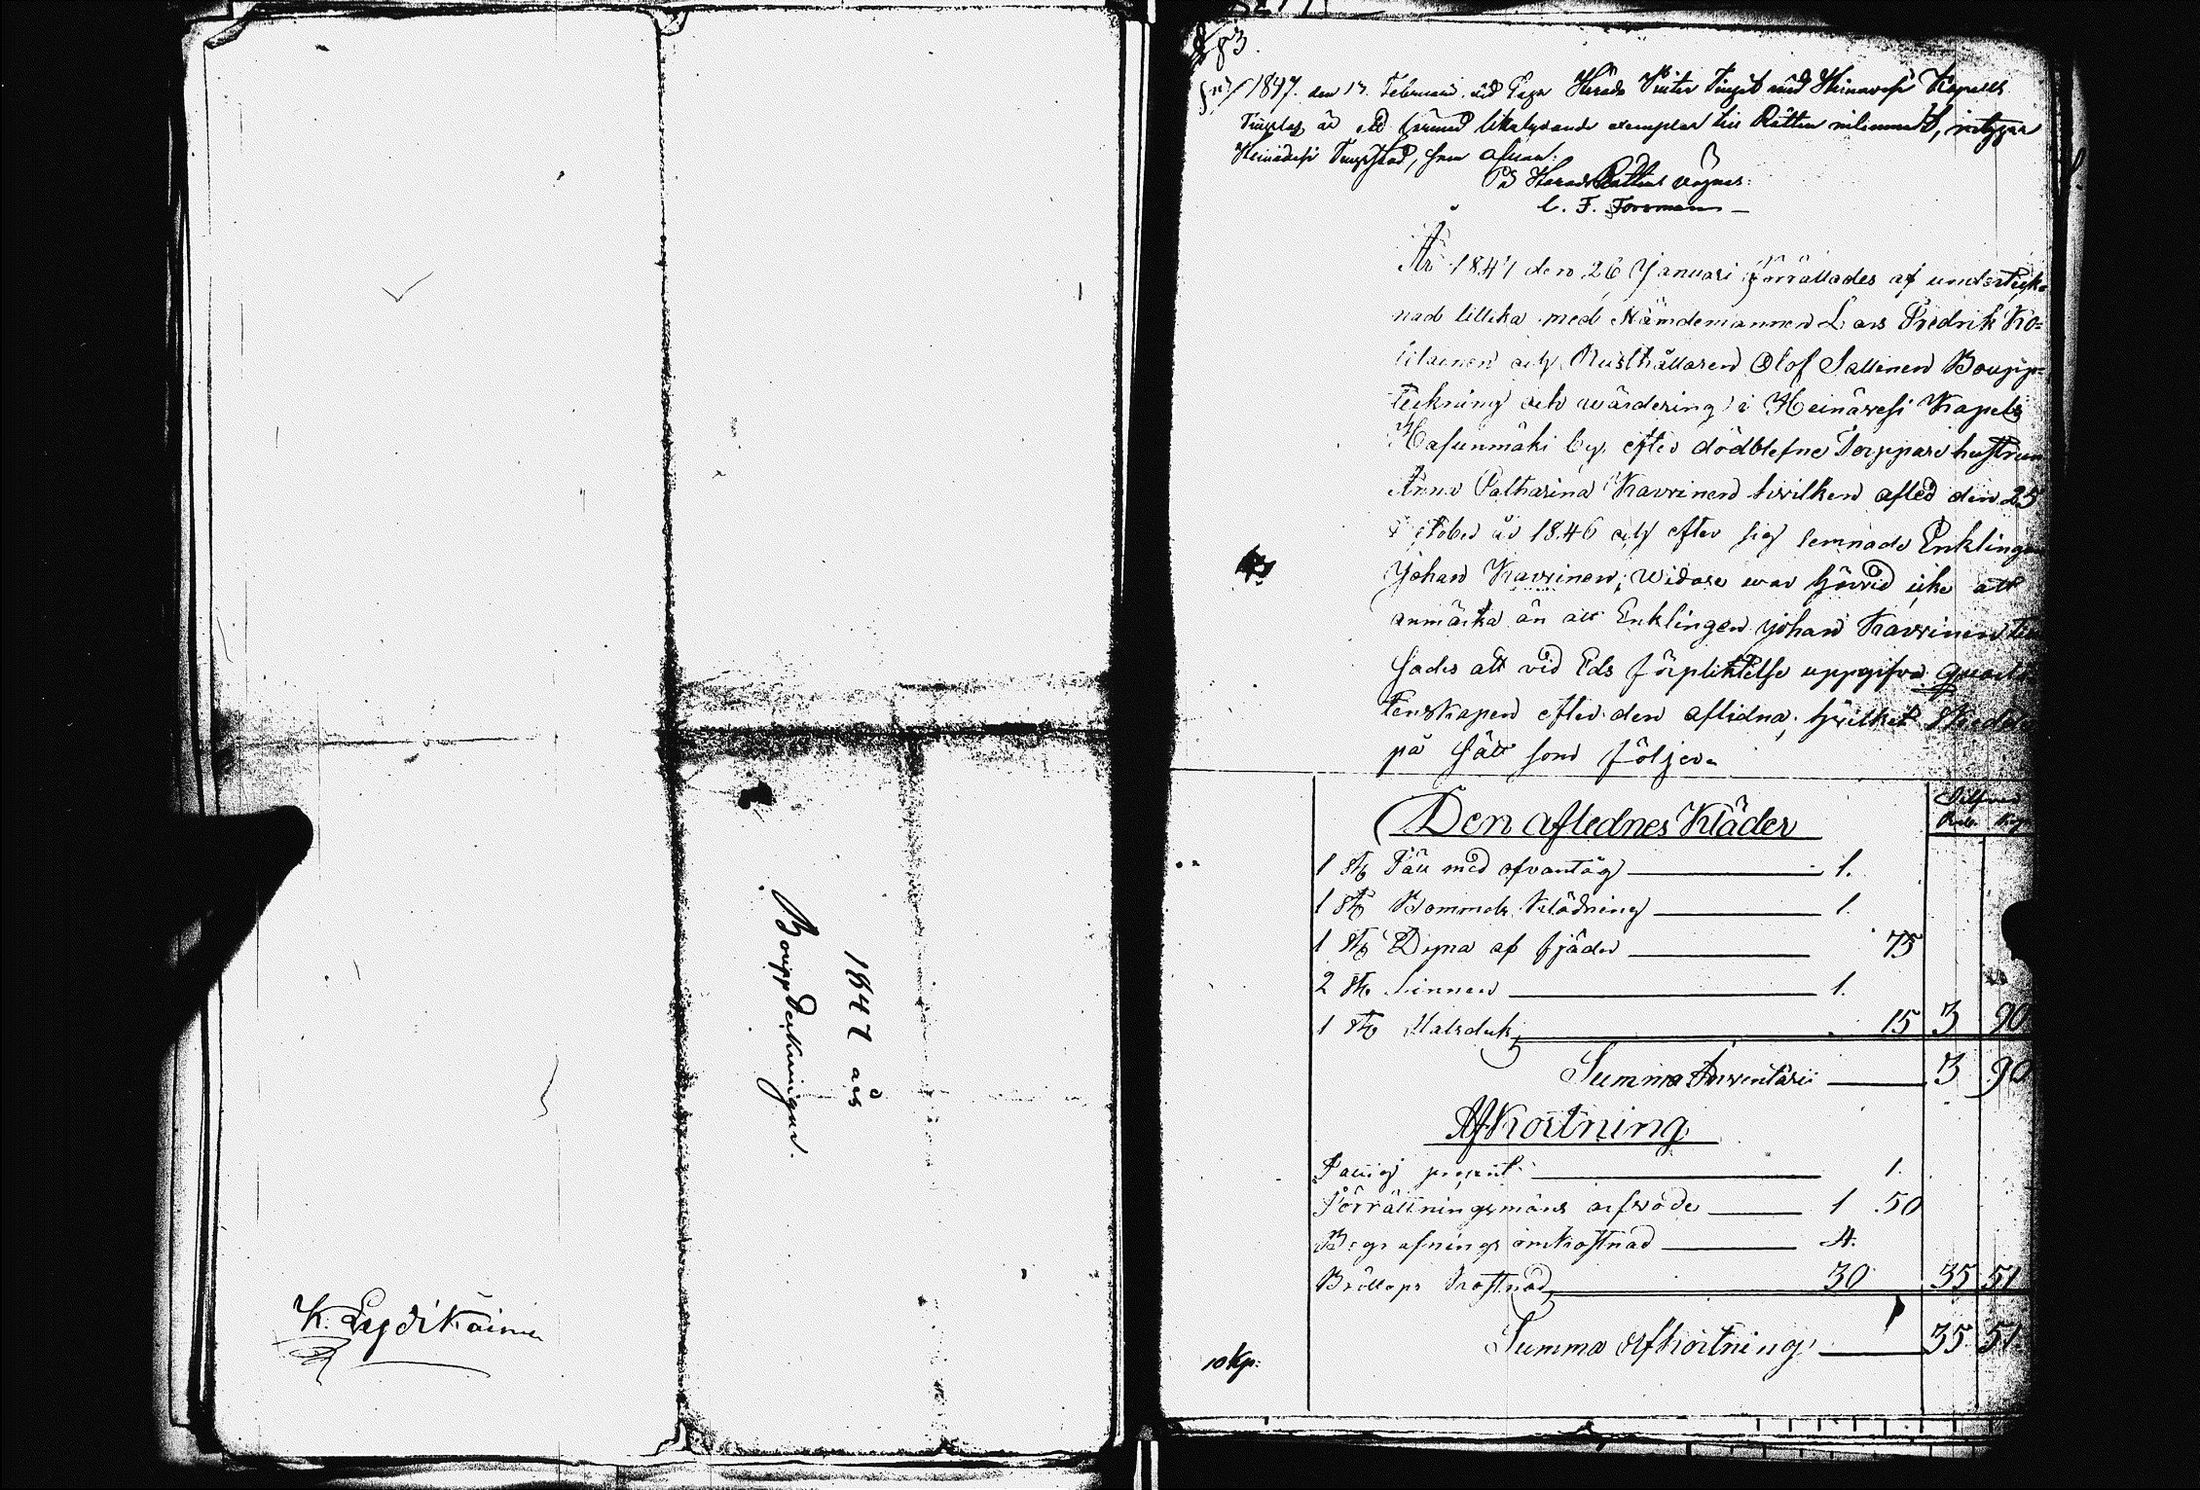 K. Lydikäinen
1847 års
Bouppteckningar.
83.
1847. den 13 Februarii vid Laga Härads Vinter Tinget med Heinävesi Kapells
Tingslag är ett härmed likalydande exemplar till Rätten inlemnadt, intygar
Heinävesi Tingstad, som ofvan:
På HäradsRättens vägnar:
C. F. Forsman
År 1847 den 26 Januari förrättades af underteck-
nad tillika med Nämdemannen Lars Fredrik Ko-
ilainen och Rusthållaren Olof Sallinen Boupp-
teckning och wärdering i Heinävesi Kapels
Hasunmäki by. efter dödblefne Torppare hustrun
Anna Catharina Kavrinen hvilken afled den 25
October år 1846 och efter sig lemnade Enklingen
Johan Kavrinen; Widare war härvid icke att
anmärka än att Enklingen Johan Kavrinen
sades att vid Eds förpliktelse uppgifva qvarlå-
tenskapen efter den aflidna, hvilket skedde
på sätt som följer.
Silfver
Rub. Kop.
Den aflednes Kläder
1 st. Fäll med ofvantåg 1.
1 st. Bommuls Klädning 1.
1 st. Dyna af fjäder 75
2 st. Linnen 1.
1 st. Halsduk 15 3 90
Summa Inventarii 3 90
Afkortning
Fattig procent 1.
Förrättningsmäns arfvode 1 50
Begrafnings omkostnad 4.
Bröllops kostnad 30 35 51
Summa Afkortning 35 51.
10 Kp: